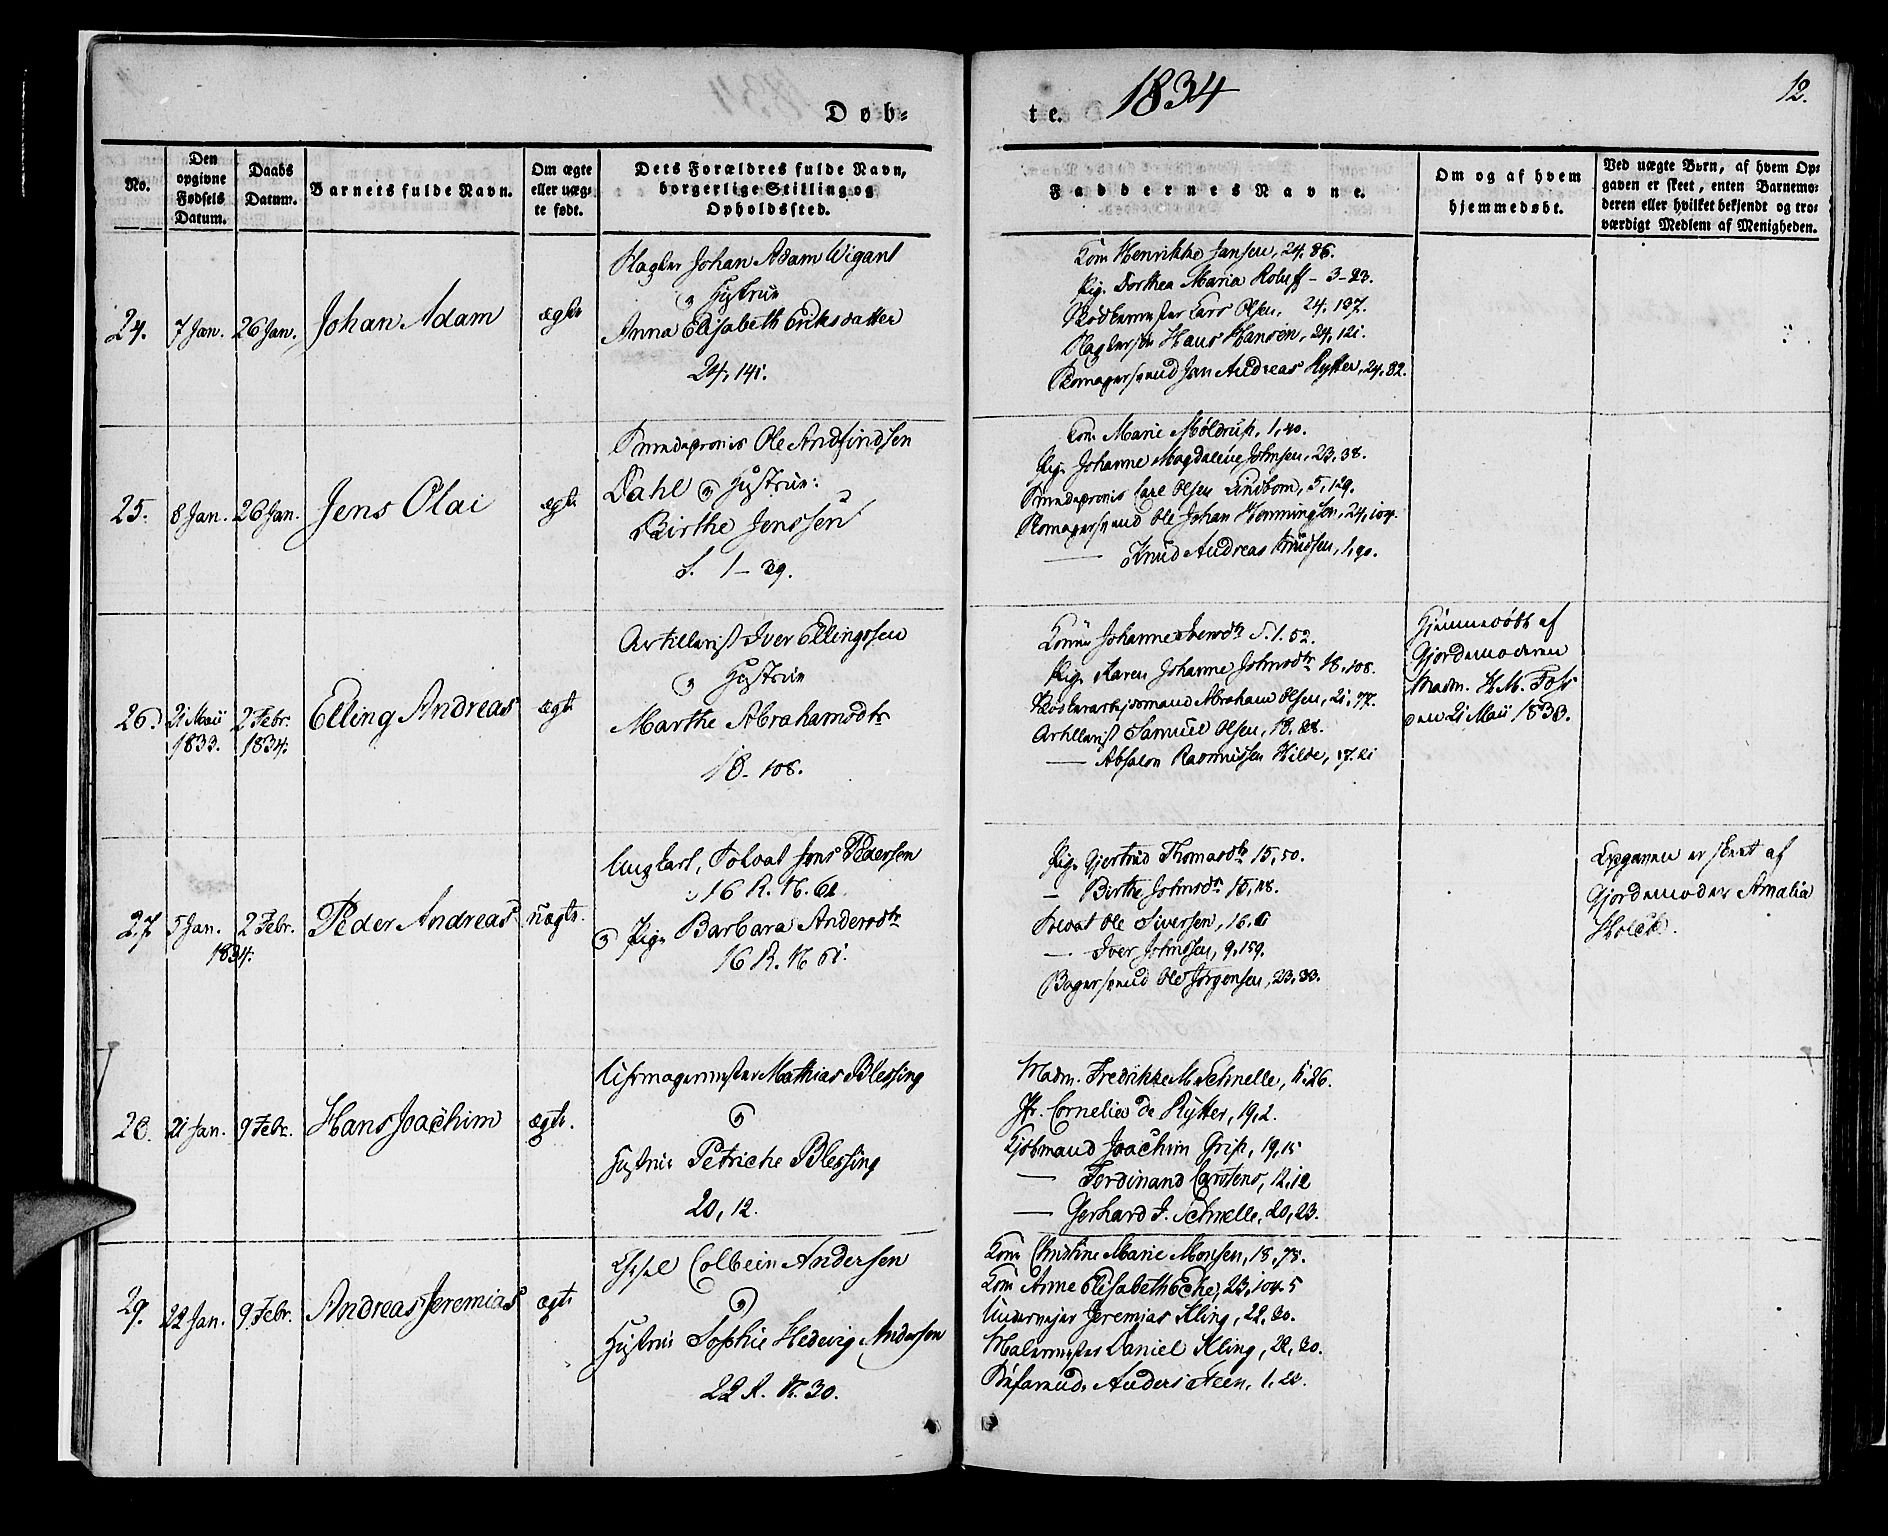 1834
12.
Døb=
te.
No.
Den opgivne Fødsels Datum.
Daabs Datum.
Barnets fulde Navn.
Om ægte eller uægte født.
Dets Forældres fulde Navn, borgerlige Stilling og Opholdssted.
Faddernes Navne.
Om og af hvem hjemmedøbt.
Ved uægte Børn, af hvem Opgaven er skeet, enten Barnemoderen eller hvilket bekjendt og troværdigt Medlem af Menigheden.
24.
7 Jan.
26 Jan.
Johan Adam
ægte
Slagter Johan Adam Wigant
Hustrue
Anna Elisabeth Eriksdatter
24, 141.
Kone Henrikke Jansen, 24, 86.
Pige Dorthea Maria Roleff - 3 - 23.
Lars Olsen, 24, 127.
Hans Hansen, 24, 121.
Skomagersvend Jan Andreas Rytter, 24, 82.
25.
8 Jan.
26 Jan.
Jens Olai
ægte
Ole Andfindsen
Dahl og Hustrue:
Birthe Jenssen
S. 1 - 29.
Kone Marie Møldrup, 1, 40.
Pige Johanne Magdalene Johnsen, 23, 38.
Carl Olsen Lindbom, 5, 129.
Skomagersvend Ole Johan Hemmingsen, 24, 104.
— Knud Andreas Knudsen, 1, 90.
26.
21 Maii 1833.
2 Febr. 1834.
Elling Andreas
ægte
Artillerist Iver Ellingssen
og Hustrue
Marthe Abrahamsdtr
18 - 108.
Kone Johanne Iversdtr S. 1. 52.
Pige Karen Johanne Johnsdtr 18, 108.
Abraham Olsen, 21, 77.
Artillerist Samuel Olsen, 18, 88.
— Absalon Rasmussen Hilde, 17. 21
Hjemmedøbt af
Gjordemoderen
Madm. H. M. Foss
den 21 Maii 1833.
27
5 Jan.
2 Febr.
1834.
Peder Andreas
uægte.
Ungkarl, Soldat Jens Pedersen
16 R. N. 61
og Pige Barbara Andersdtr
16 R. N. 61.
Pige Gjertrud Thomasdtr 15, 50.
— Birthe Johnsdtr 15, 28.
Soldat Ole Siversen, 16. 6
— Iver Johnssen, 9, 159.
Bagersvend Ole Jørgensen, 23, 33.
Opgaven er skeet af
Gjordemoder Amalia
28.
21 Jan.
9 Febr.
Hans Joachim
ægte.
Uhrmagermester Mathias Blessing
og
Hustrue Petriche Blessing
20, 12.
Madm. Fredrikke M. Schnelle, 11. 26.
Jfr. Cornelia de Rytter, 19, 2.
Kjøbmand Joachim Grip, 19, 15
— Ferdinand Carstens, 12, 12
— Gerhard J. Schnelle, 20, 23.
29.
22 Jan.
9 Febr.
Andreas Jeremias
ægte
Colbein Andersen
og
Hustrue Sophie Hedevig Andersen
22 R. N. 30.
Kone Christine Marie Monsen, 18, 78.
Kone Anne Elisabeth Eche, 23, 104. 5
Jeremias Kling, 22, 30.
Malermester Daniel Kling, 22, 30.
Anders Steen, 1, 21.